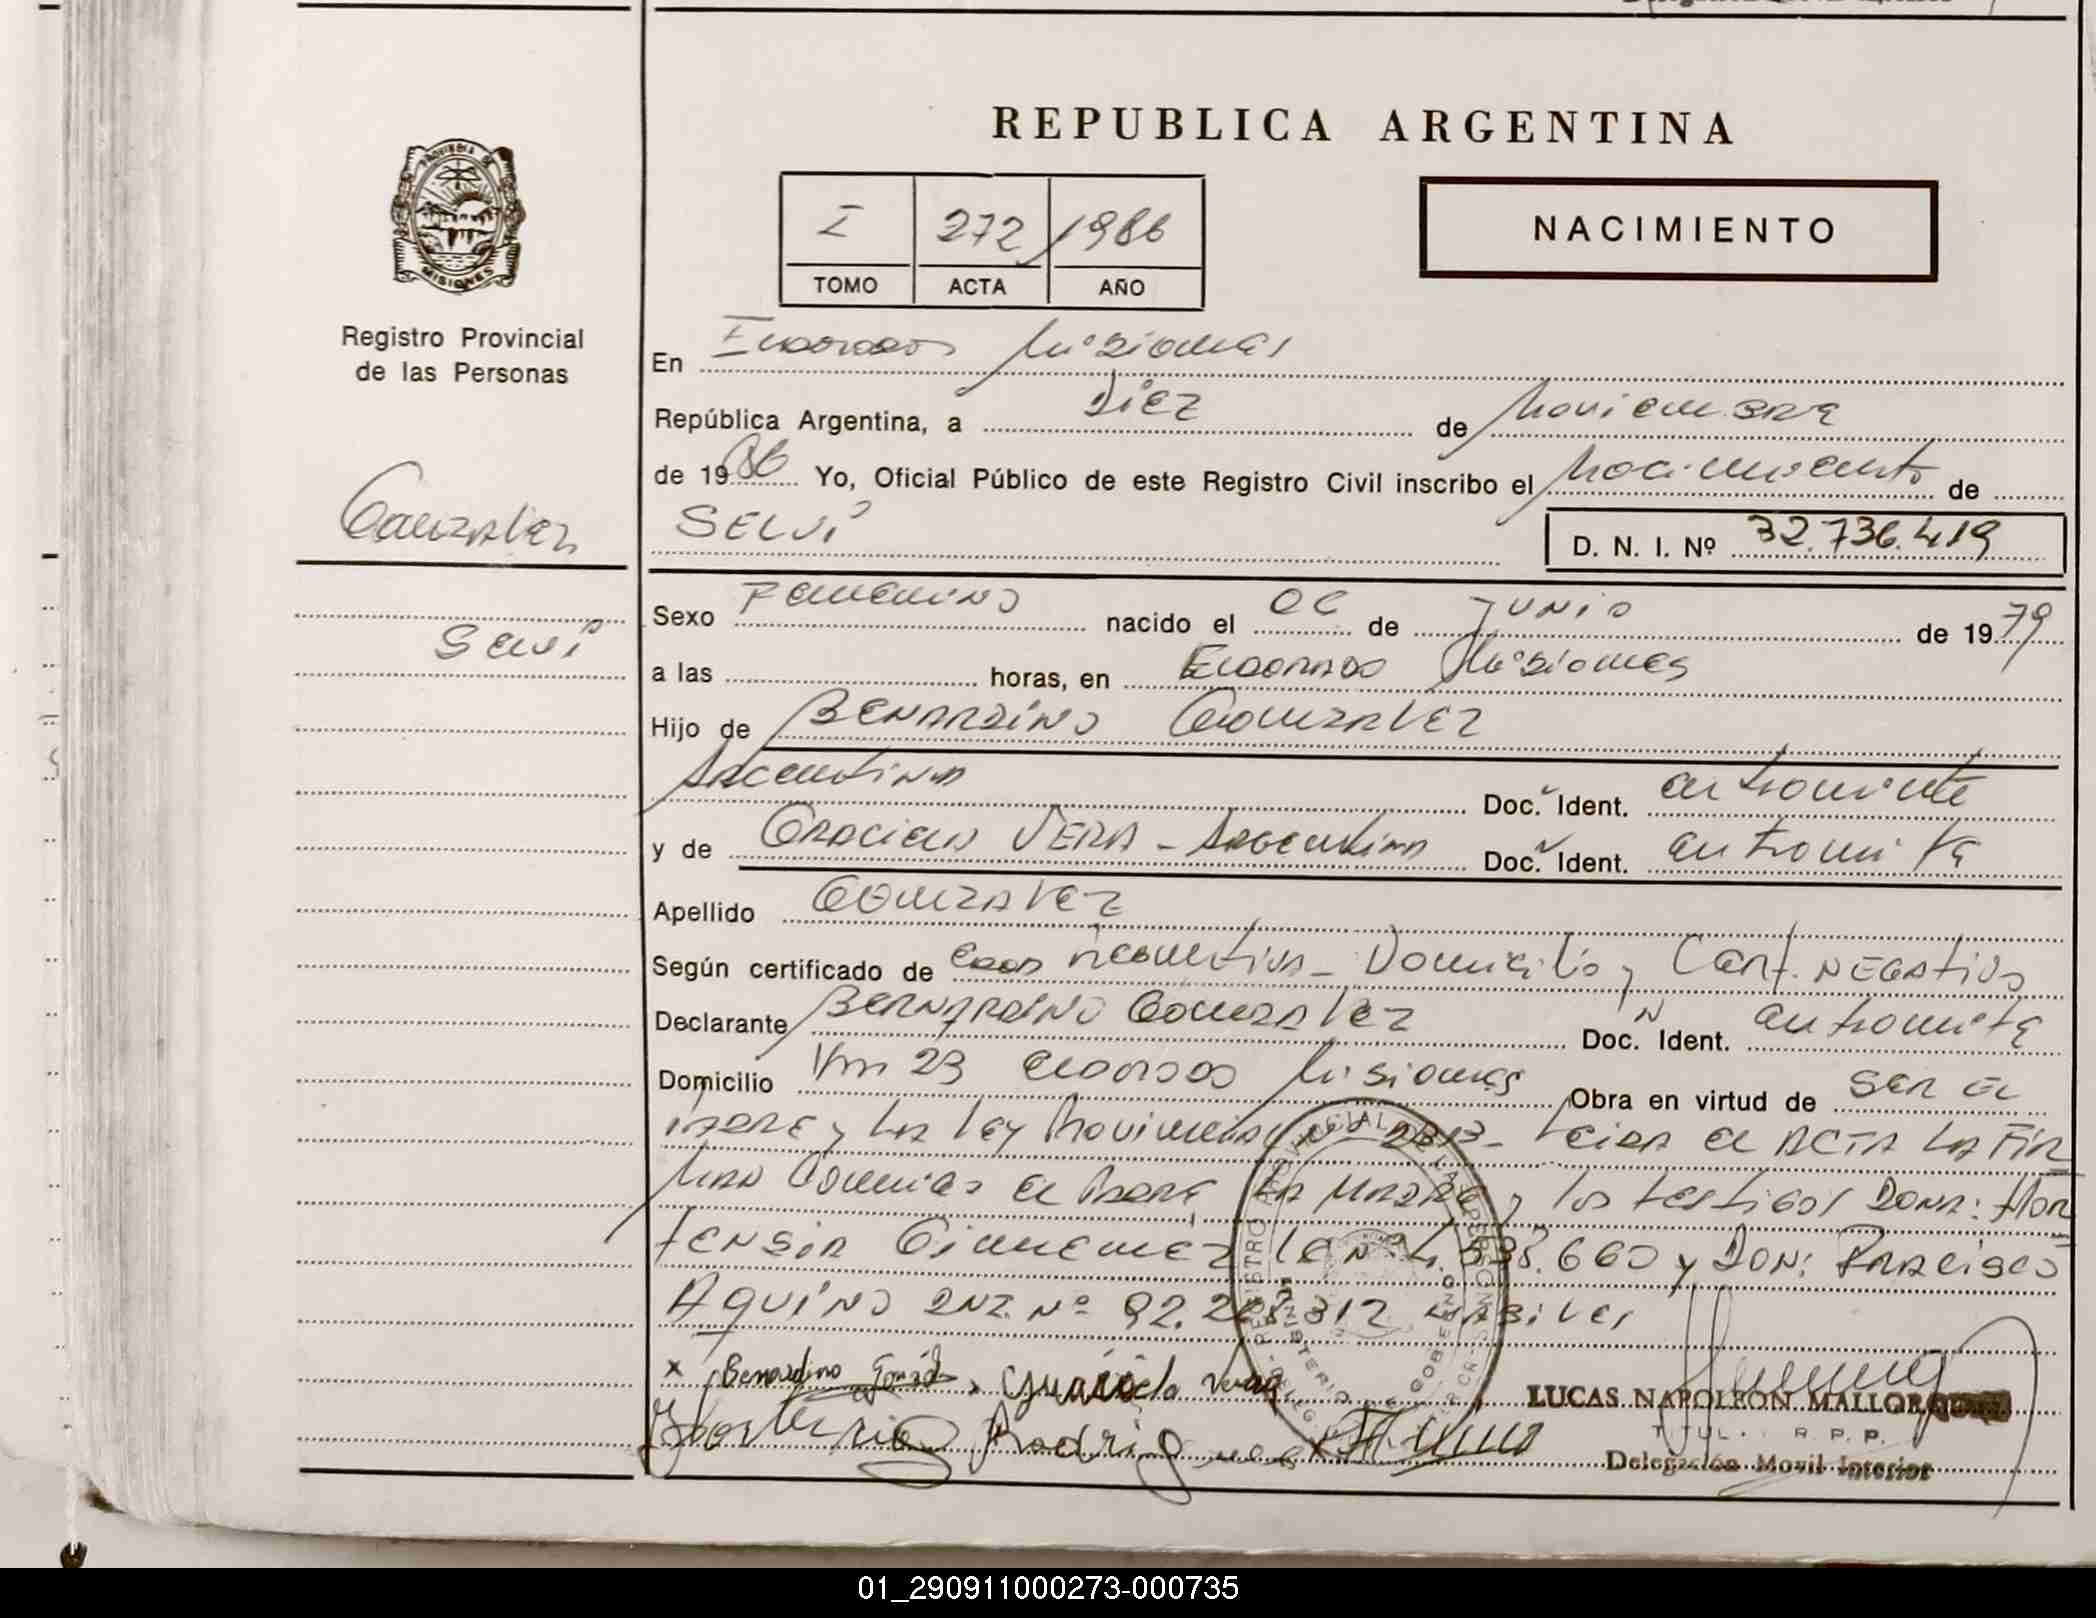 REPUBLICA ARGENTINA
PROVINCIA DE
MISIONES
Registro Provincial
de las Personas
I 272 1986
TOMO ACTA AÑO
NACIMIENTO
En Eldorado Misiones
República Argentina, a Diez de Noviembre
de 1986 Yo, Oficial Público de este Registro Civil inscribo el Nacimiento de
Gonzalez
SELVI
D. N. I. Nº 32.736.419
Sexo Femenino nacido el 06 de Junio de 1979
Selvi
a las horas, en Eldorado Misiones
Hijo de BENARDINO Gonzalez
Argentino Doc. Ident. en tramite
y de Graciela VERA - Argentina Doc. Ident. en tramite
Apellido Gonzalez
Según certificado de Domicilio y Cert. NEGATIVO
Declarante BERNARDINO Gonzalez Doc. Ident. en tramite
Domicilio Km 23 Eldorado Misiones Obra en virtud de SER EL
PADRE y La Ley Provincial Nº 2313 - Leida el ACTA LA FIR
MAN Conmigo el Padre, LA MADRE y los testigos DOÑA: HOR
TENSIA Gimenez y DON:
AQUINO DNI. Nº
Bernardino Gonzá Graciela Vera
Hortencia Rodrigues
LUCAS NAPOLEON MALLOR
R. P. P.
Delegación Movil Interior
01_290911000273-000735